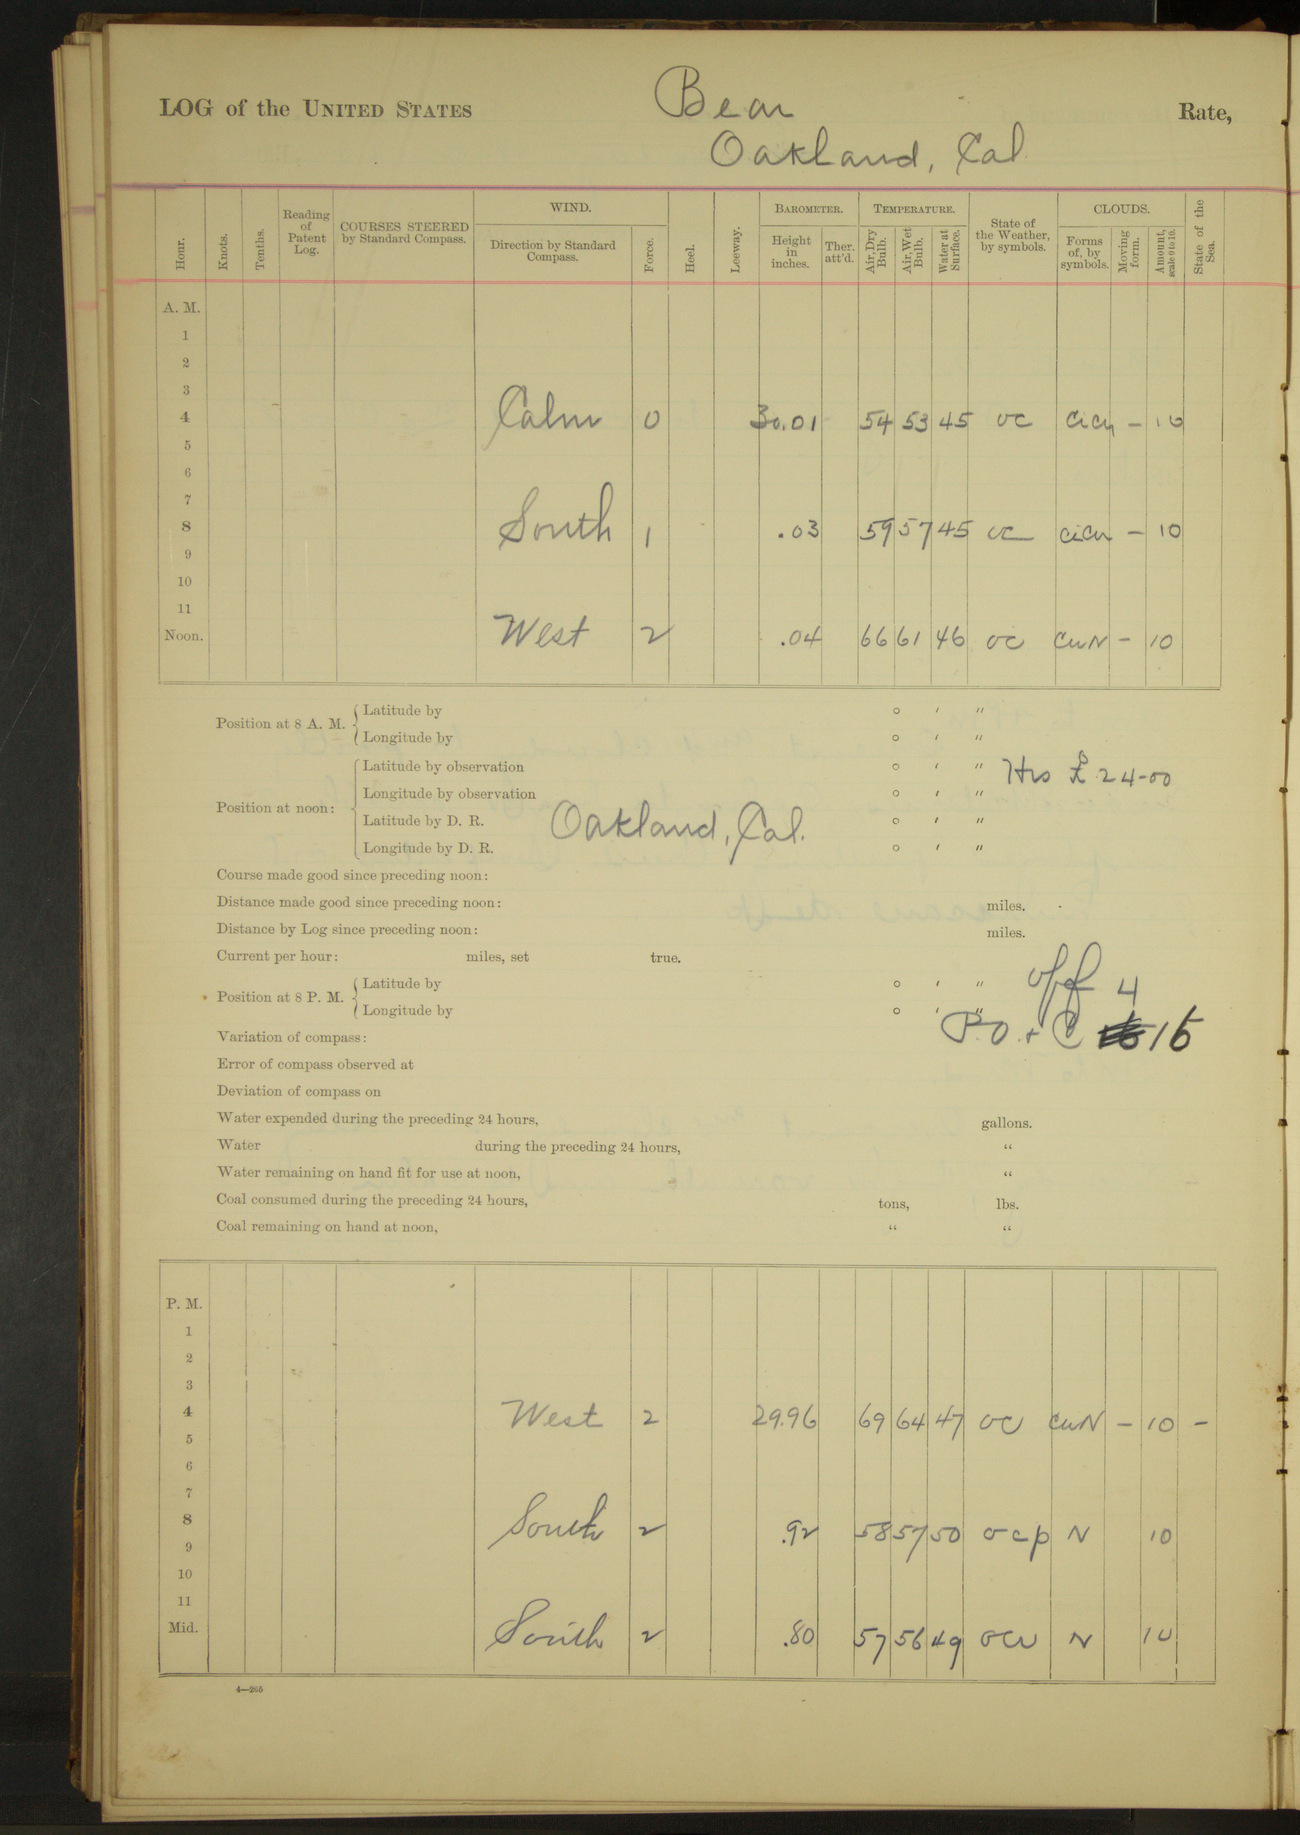 LOG of the UNITED STATES Bear Rate,
Oakland, Cal
Hour. Knots. Tenths. Reading of Patent Log. COURSES STEERED by Standard Compass. WIND. Direction by Standard Compass. Force. Heel. Leeway. BAROMETER. Height in inches. Ther. att'd. TEMPERATURE. Air, Dry Bulb. Air, Wet Bulb. Water at Surface. State of the Weather, by symbols. CLOUDS. Forms of, by symbols. Moving form. Amount, scale 0 to 10. State of the Sea.
A. M.
1
2
3
4 Calm 0 30.01 54 53 45 oc CiCu – 10
5
6
7
8 South 1 .03 59 57 45 oc CiCu – 10
9
10
11
Noon. West 2 .04 66 61 46 oc CuN – 10
Position at 8 A. M. { Latitude by ° ′ ″
Longitude by ° ′ ″
Position at noon: { Latitude by observation ° ′ ″ Hrs £ 24-00
Longitude by observation ° ′ ″
Latitude by D. R. Oakland, Cal. ° ′ ″
Longitude by D. R. ° ′ ″
Course made good since preceding noon:
Distance made good since preceding noon: miles.
Distance by Log since preceding noon: miles.
Current per hour: miles, set true.
Position at 8 P. M. { Latitude by ° ′ ″ Off 4
Longitude by ° ′ ″ P.O. + C 15
Variation of compass:
Error of compass observed at
Deviation of compass on
Water expended during the preceding 24 hours, gallons.
Water during the preceding 24 hours, “
Water remaining on hand fit for use at noon, “
Coal consumed during the preceding 24 hours, tons, lbs.
Coal remaining on hand at noon, “ “
P. M.
1
2
3
4 West 2 29.96 69 64 47 oc CuN – 10 –
5
6
7
8 South 2 .92 58 57 50 ocp N 10
9
10
11
Mid. South 2 .80 57 56 49 ocu N 10
4—265